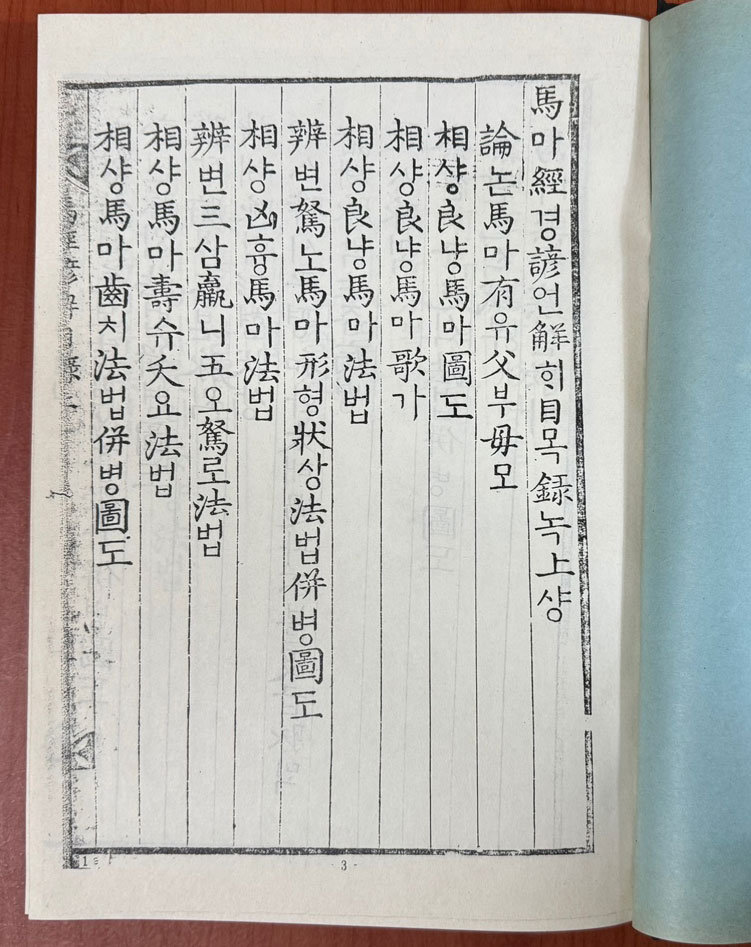 馬마經경諺언解ᄒᆡ目목錄녹上샹
論논馬마有유父부毋모
相샹良냥馬마圖도
相샹良냥馬마歌가
相샹良냥馬마法법
辨변駑노馬마形형狀상法법倂병圖도
相샹凶흉馬마法법
辨변三삼羸니五오駑로法법
相샹馬마壽슈夭요法법
相샹馬마齒치法법倂병圖도
- 3 -